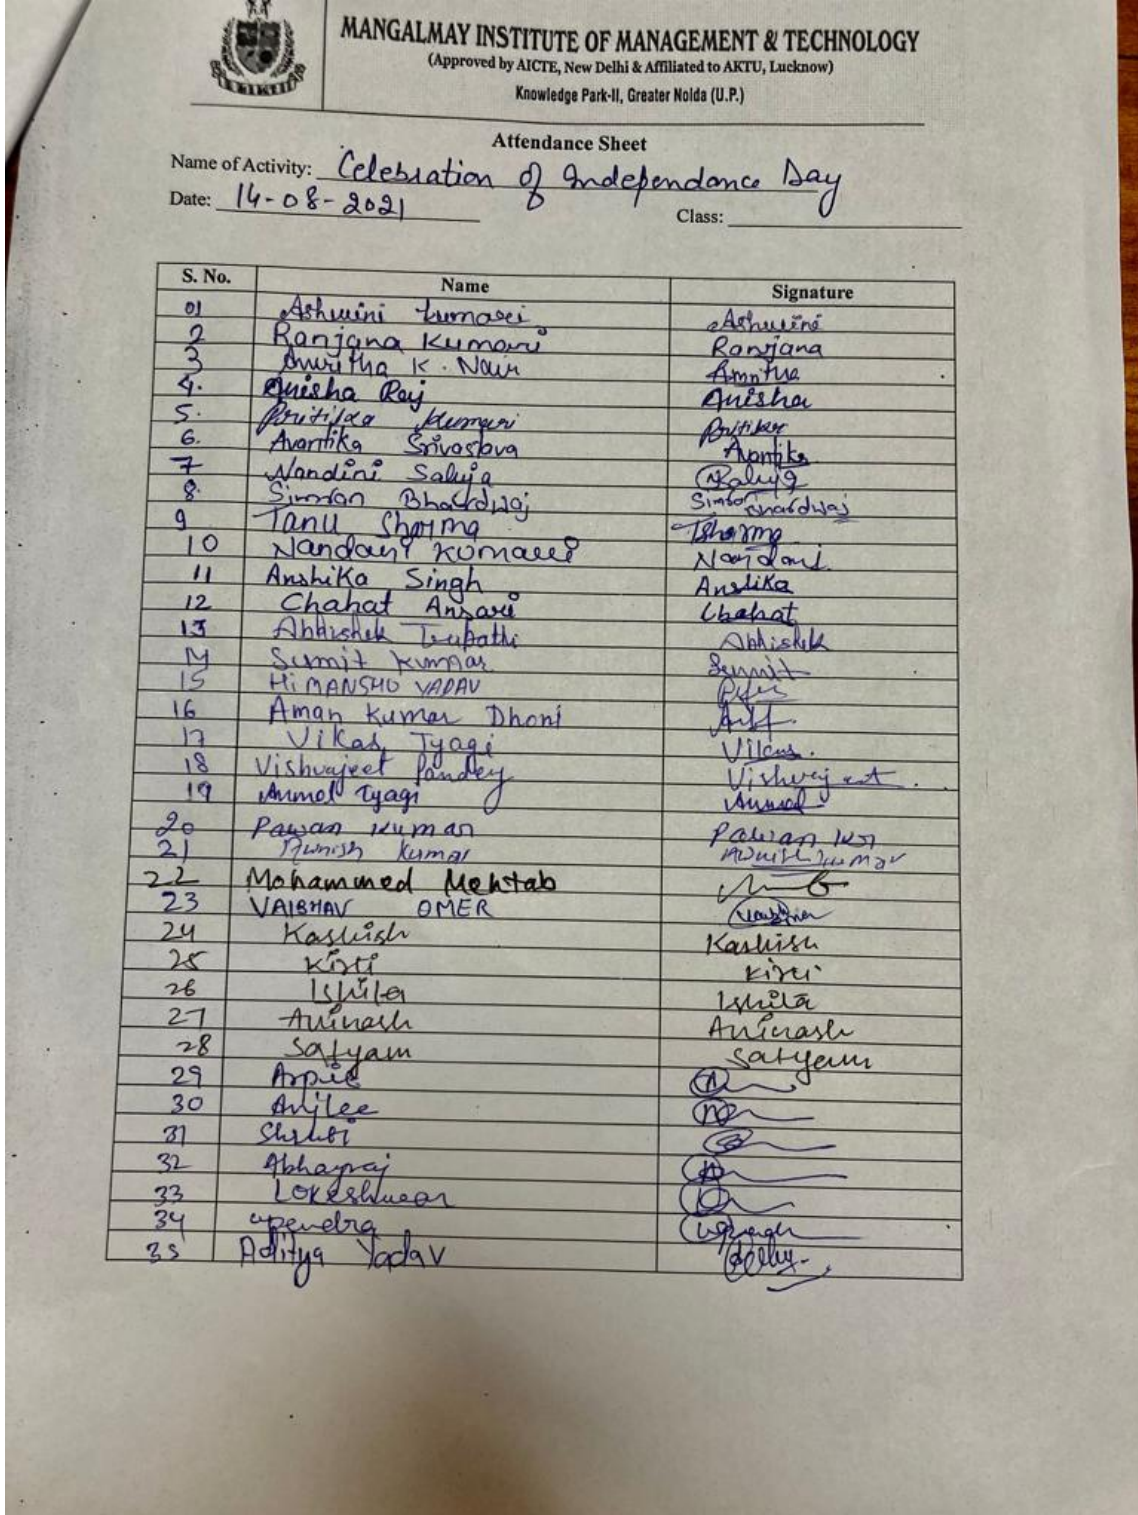 MANGALMAY INSTITUTE OF MANAGEMENT & TECHNOLOGY
(Approved by AICTE, New Delhi & Affiliated to AKTU, Lucknow)
Knowledge Park-II, Greater Noida (U.P.)
Attendance Sheet
Name of Activity: Celebration of Independance Day
Date: 14-08-2021
Class:
S. No. Name Signature
01 Ashwini kumari Ashwini
2 Ranjana Kumari Ranjana
3 Amritha K. Nair Amritha
4. Anisha Raj Anisha
5. Pritika Kumari Pritika
6. Avantika Srivastava Avantika
7 Nandini Saluja Saluja
8. Simran Bhardwaj Simran Bhardwaj
9 Tanu Sharma TSharma
10 Nandani Kumari Nandani
11 Anshika Singh Anshika
12 Chahat Ansari Chahat
13 Abhishek Tripathi Abhishek
14 Sumit Kumar Sumit
15 HIMANSHU YADAV
16 Aman Kumar Dhoni
17 Vikas Tyagi Vikas.
18 Vishvajeet Pandey Vishvajeet.
19 Anmol Tyagi Anmol
20 Pawan Kumar Pawan Kr
21 Avnish Kumar Avnish Kumar
22 Mohammed Mehtab
23 VAIBHAV OMER
24 Kashish Kashish
25 Kirti Kirti
26 Ishita Ishita
27 Avinash Avinash
28 Satyam Satyam
29 Arpit
30 Anjlee
31
32 Abhayraj
33 Lokeshwar
34 upendra
35 Aditya Yadav